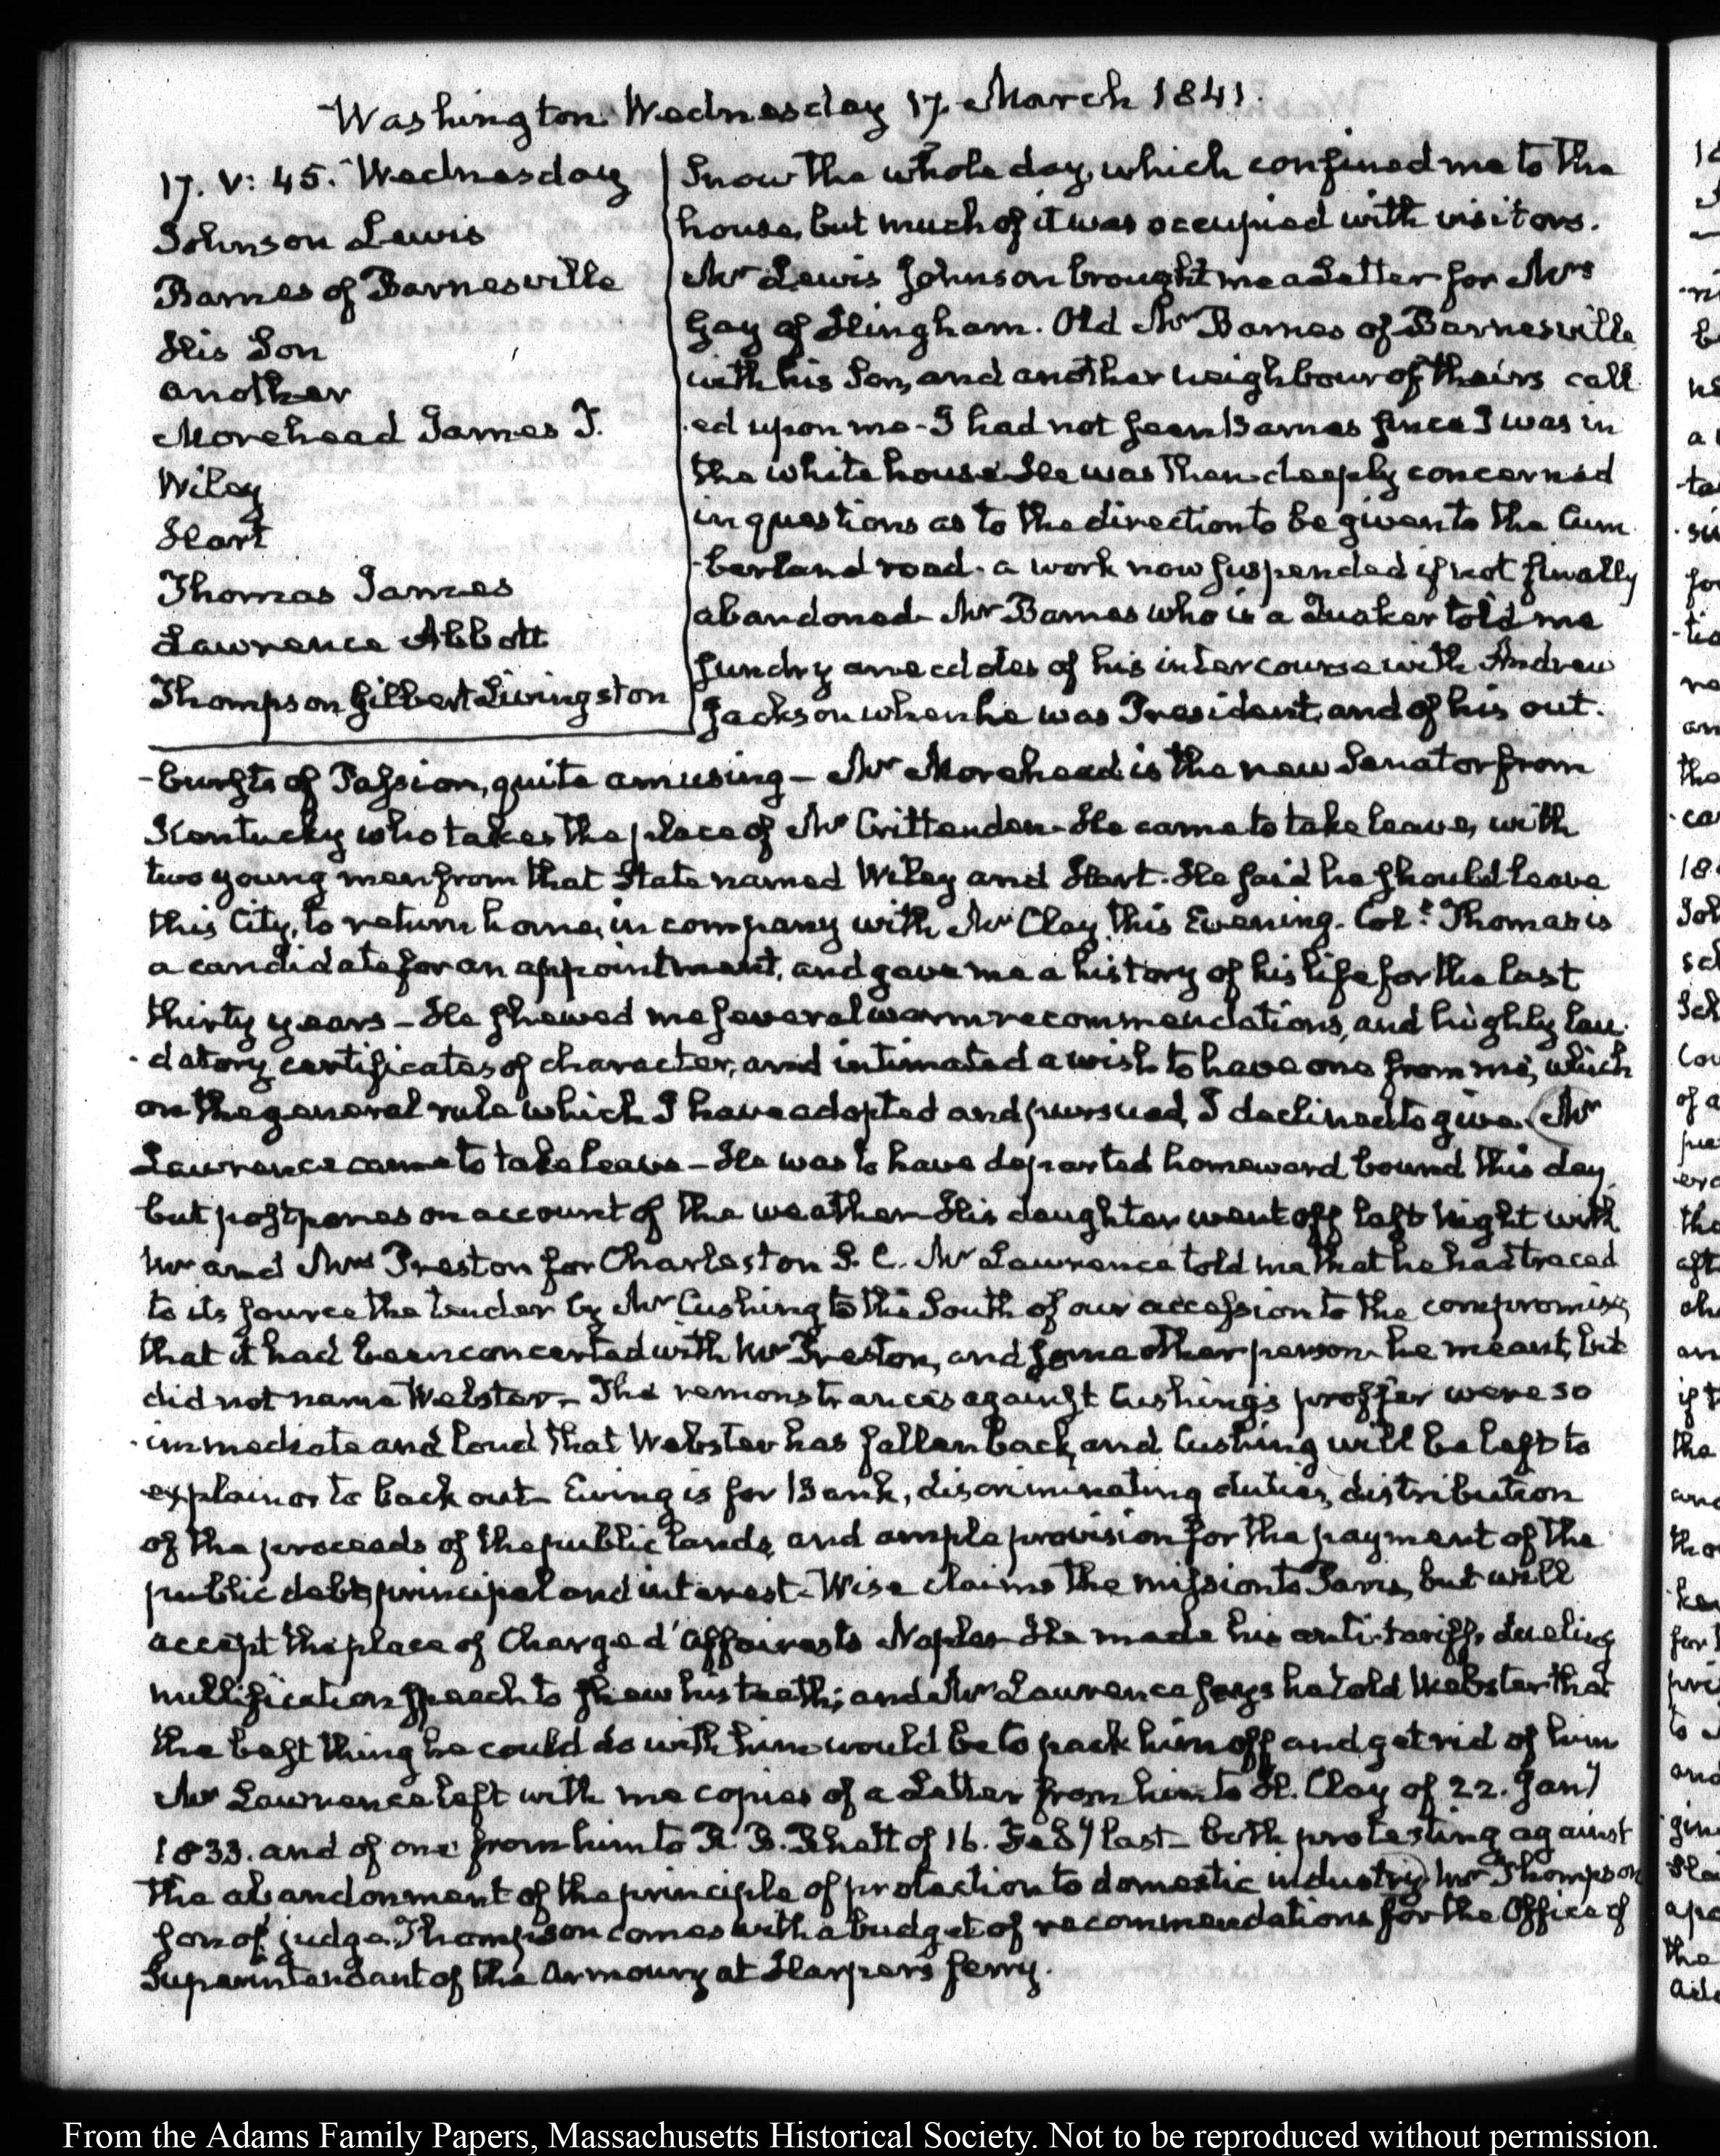 Washington Wednesday 17. March 1841.
17. V: 45. Wednesday
Johnson Lewis
Barnes of Barnesville
His Son
another
Morehead James T.
Wiley
Hart
Thomas James
Lawrence Abbott
Thompson Gilbert Livingston
Snow the whole day, which confined me to the
house, but much of it was occupied with visitors.
Mr Lewis Johnson brought me a Letter for Mrs
Gay of Hingham. Old Mr Barnes of Barnesville
with his Son, and another neighbour of theirs call
ed upon me - I had not seen Barnes since I was in
the white house. He was then deeply concerned
in questions as to the direction to be given to the Cum
-berland road. a work now suspended if not finally
abandoned. Mr Barnes who is a Quaker told me
sundry anecdotes of his intercourse with Andrew
Jackson when he was President, and of his out.
-bursts of Passion, quite amusing - Mr Morehead is the new Senator from
Kentucky who takes the place of Mr Crittenden. He came to take leave, with
two young men from that State named Wiley and Hart. He said he should leave
this City, to return home, in company with Mr Clay, this Evening. Coll: Thomas is
a candidate for an appointment, and gave me a history of his life for the last
thirty years - He shewed me several warm recommendations, and highly lau
-datory certificates of character, and intimated a wish to have one from me, which
on the general rule which I have adopted and pursued, I declined to give. (Mr
Lawrence came to take leave - He was to have departed homeward bound this day,
but postpones on account of the weather. His daughter went off last Night with
Mr and Mrs Preston for Charleston S. C. Mr Lawrence told me that he had traced
to its source the tender by Mr Cushing to the South of our accession to the compromise,
that it had been concerted with Mr Preston, and some other person he meant, but
did not name Webster - The remonstrances against Cushing's proffer were so
immediate and loud that Webster has fallen back, and Cushing will be left to
explain or to back out. Ewing is for Bank, discriminating duties, distribution
of the proceeds of the public lands, and ample provision for the payment of the
public debt, principal and interest - Wise claims the mission to Paris, but will
accept the place of Chargé d'Affaires to Naples. He made his anti-tariff, dueling
nullification speech to shew his teeth; and Mr Lawrence says he told Webster that
the best thing he could do with him would be to pack him off and get rid of him
Mr Lawrence left with me copies of a Letter from him to H. Clay of 22. Jany
1833. and of one from him to R. B. Rhett of 16. Feby last - both protesting against
the abandonment of the principle of protection to domestic industry) Mr Thompson
son of judge Thompson comes with a budget of recommendations for the Office of
Superintendant of the Armoury at Harper's ferry.
From the Adams Family Papers, Massachusetts Historical Society. Not to be reproduced without permission.